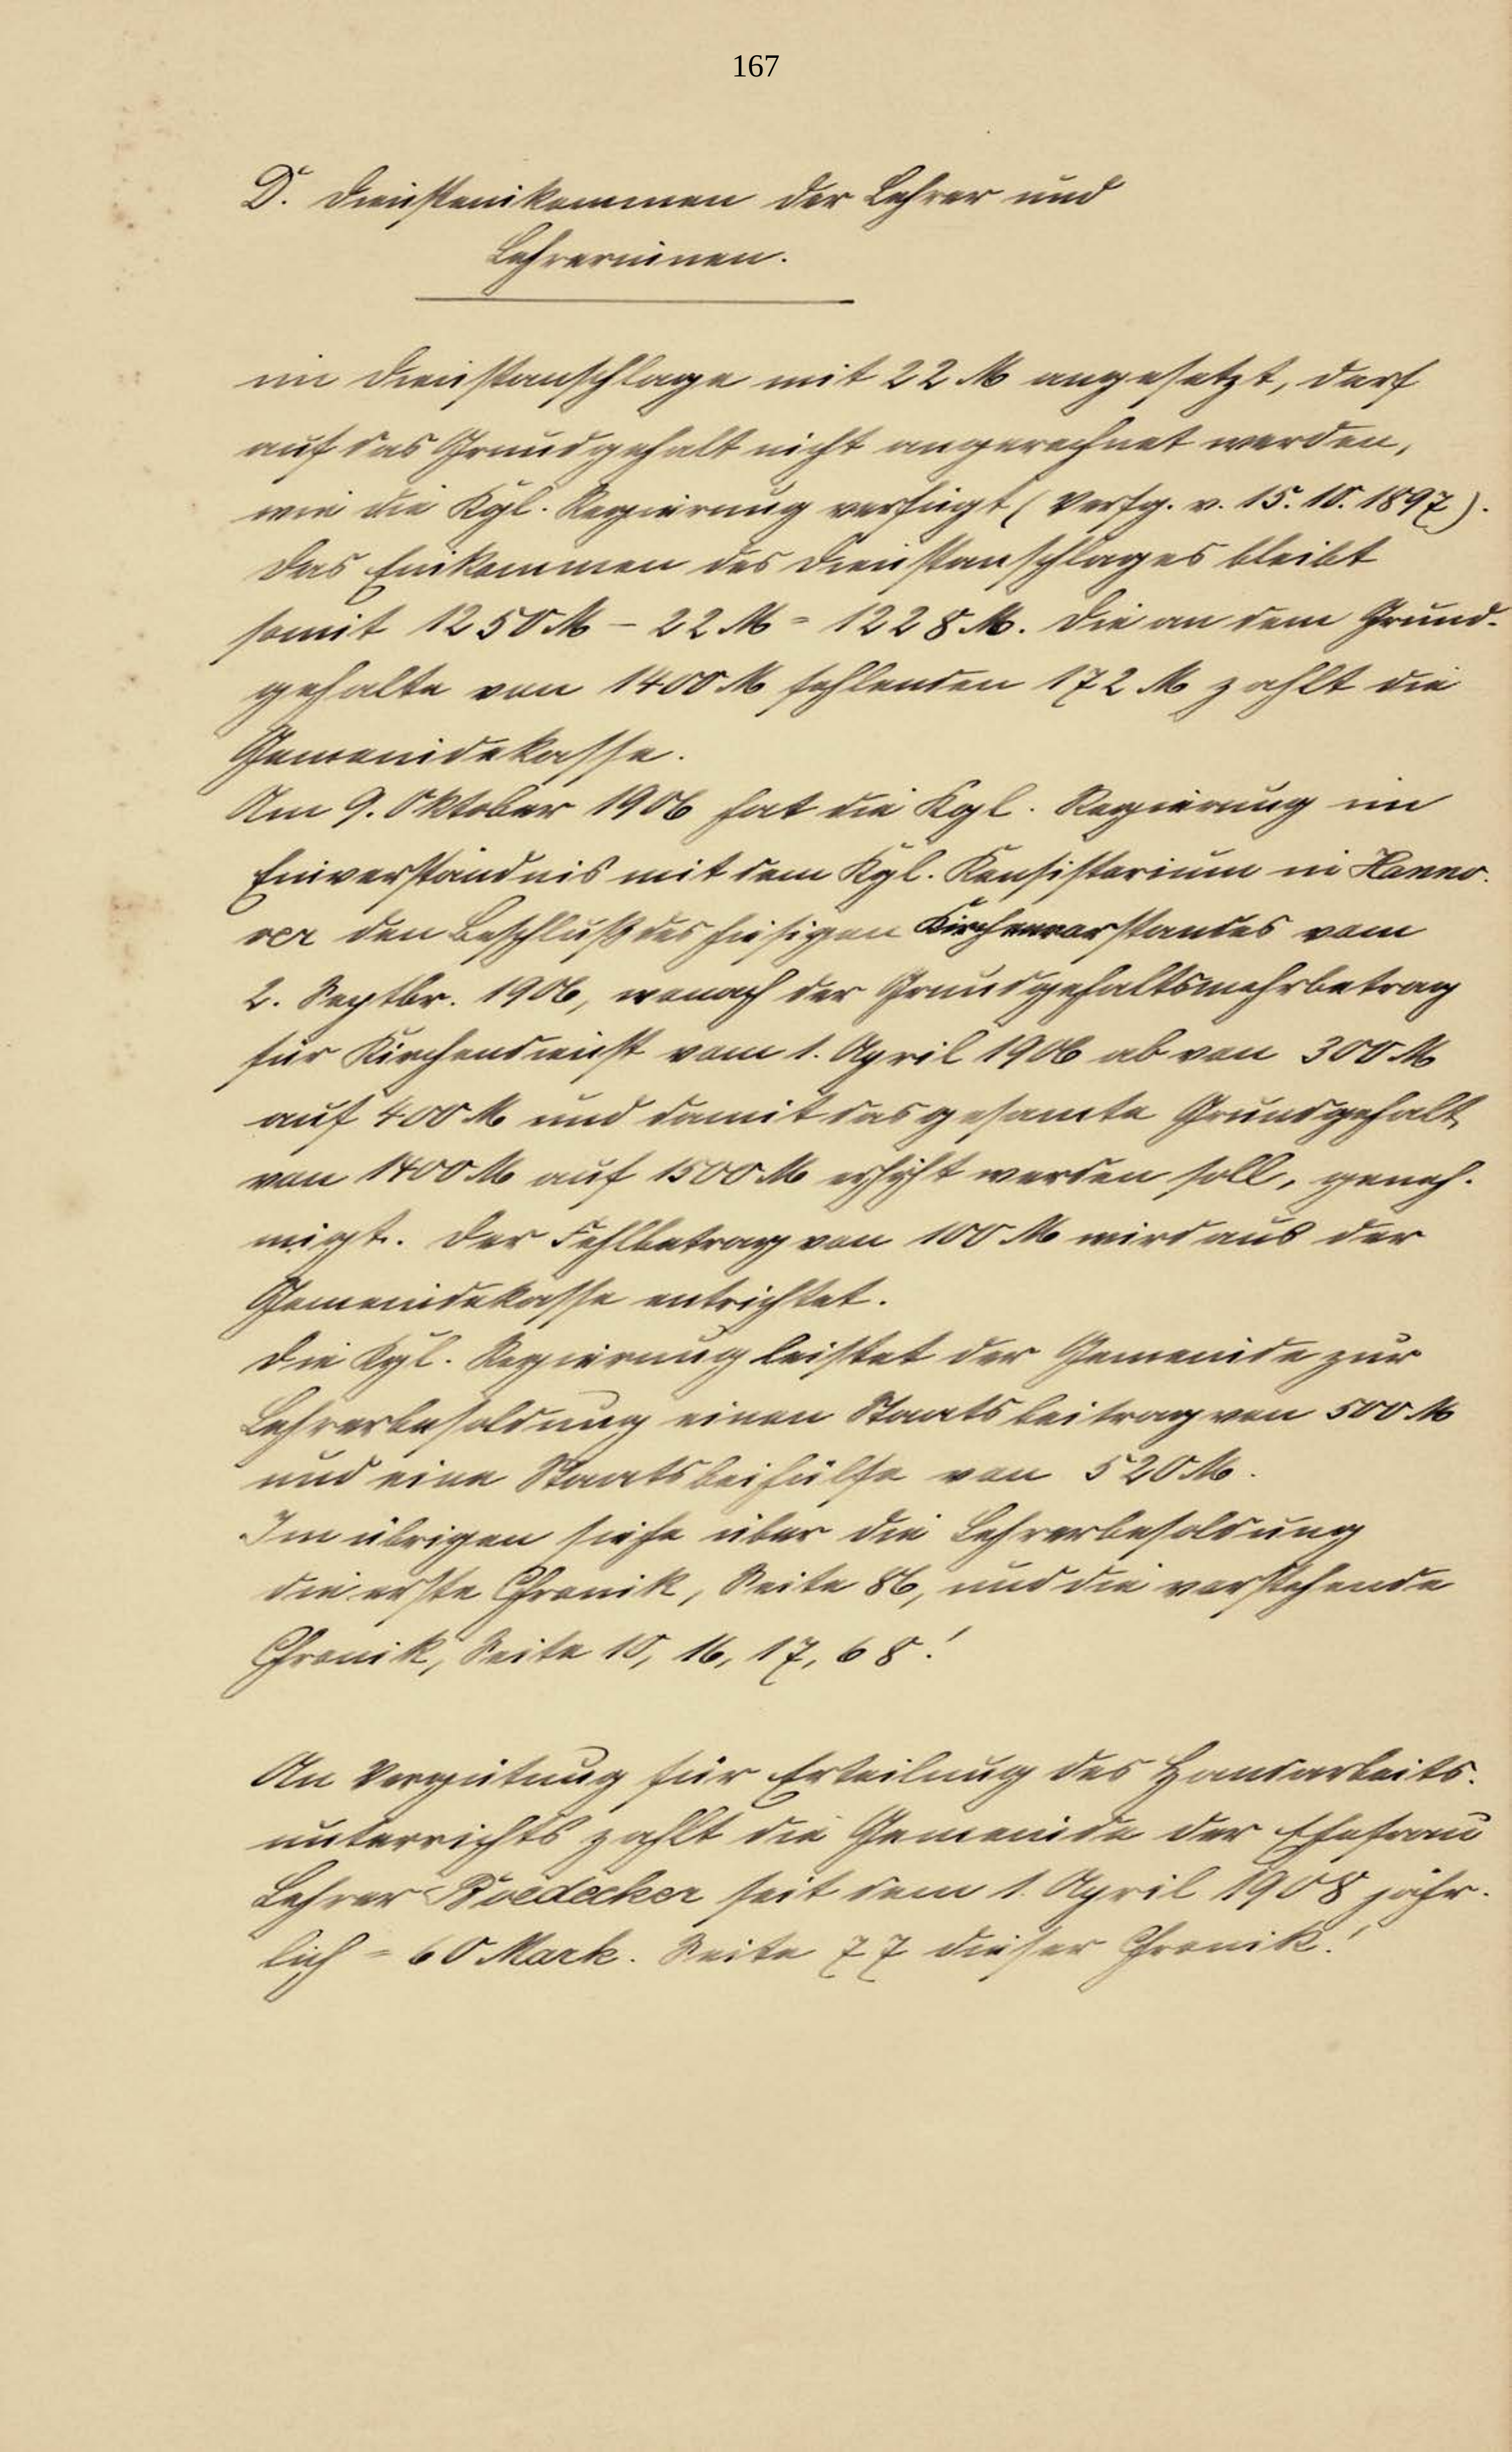 167
D. Diensteinkommen der Lehrer und
Lehrerinnen.
im Dienstanschlage mit 22 M angesetzt, darf
auf das Grundgehalt nicht angerechnet werden,
wie die Kgl. Regierung verfügt (Verfg. v. 15. 10. 1897).
Das Einkommen des Dienstanschlages bleibt
somit 1250 M - 22 M = 1228 M. Die an dem Grund-
gehalte von 1400 M fehlenden 172 M zahlt die
Gemeindekasse.
Am 9. Oktober 1906 hat die Kgl. Regierung im
Einverständnis mit dem Kgl. Konsistorium in Hanno-
ver den Beschluß des hiesigen Kirchenvorstandes vom
2. Septbr. 1906, wonach der Grundgehaltsmehrbetrag
für Kirchendienst vom 1. April 1906 ab von 300 M
auf 400 M und damit das gesamte Grundgehalt
von 1400 M auf 1500 M erhöht werden soll, geneh-
migt. Der Fehlbetrag von 100 M wird aus der
Gemeindekasse entrichtet.
Die Kgl. Regierung leistet der Gemeinde zur
Lehrerbesoldung einen Staatsbeitrag von 500 M
und eine Staatsbeihülfe von 520 M.
Im übrigen siehe über die Lehrerbesoldung
die erste Chronik, Seite 86, und die vorstehende
Chronik, Seite 10, 16, 17, 68!
An Vergütung für Erteilung des Handarbeits-
unterrichts zahlt die Gemeinde der Ehefrau
Lehrer Boedecker seit dem 1. April 1908 jähr-
lich = 60 Mark. Seite 77 dieser Chronik!